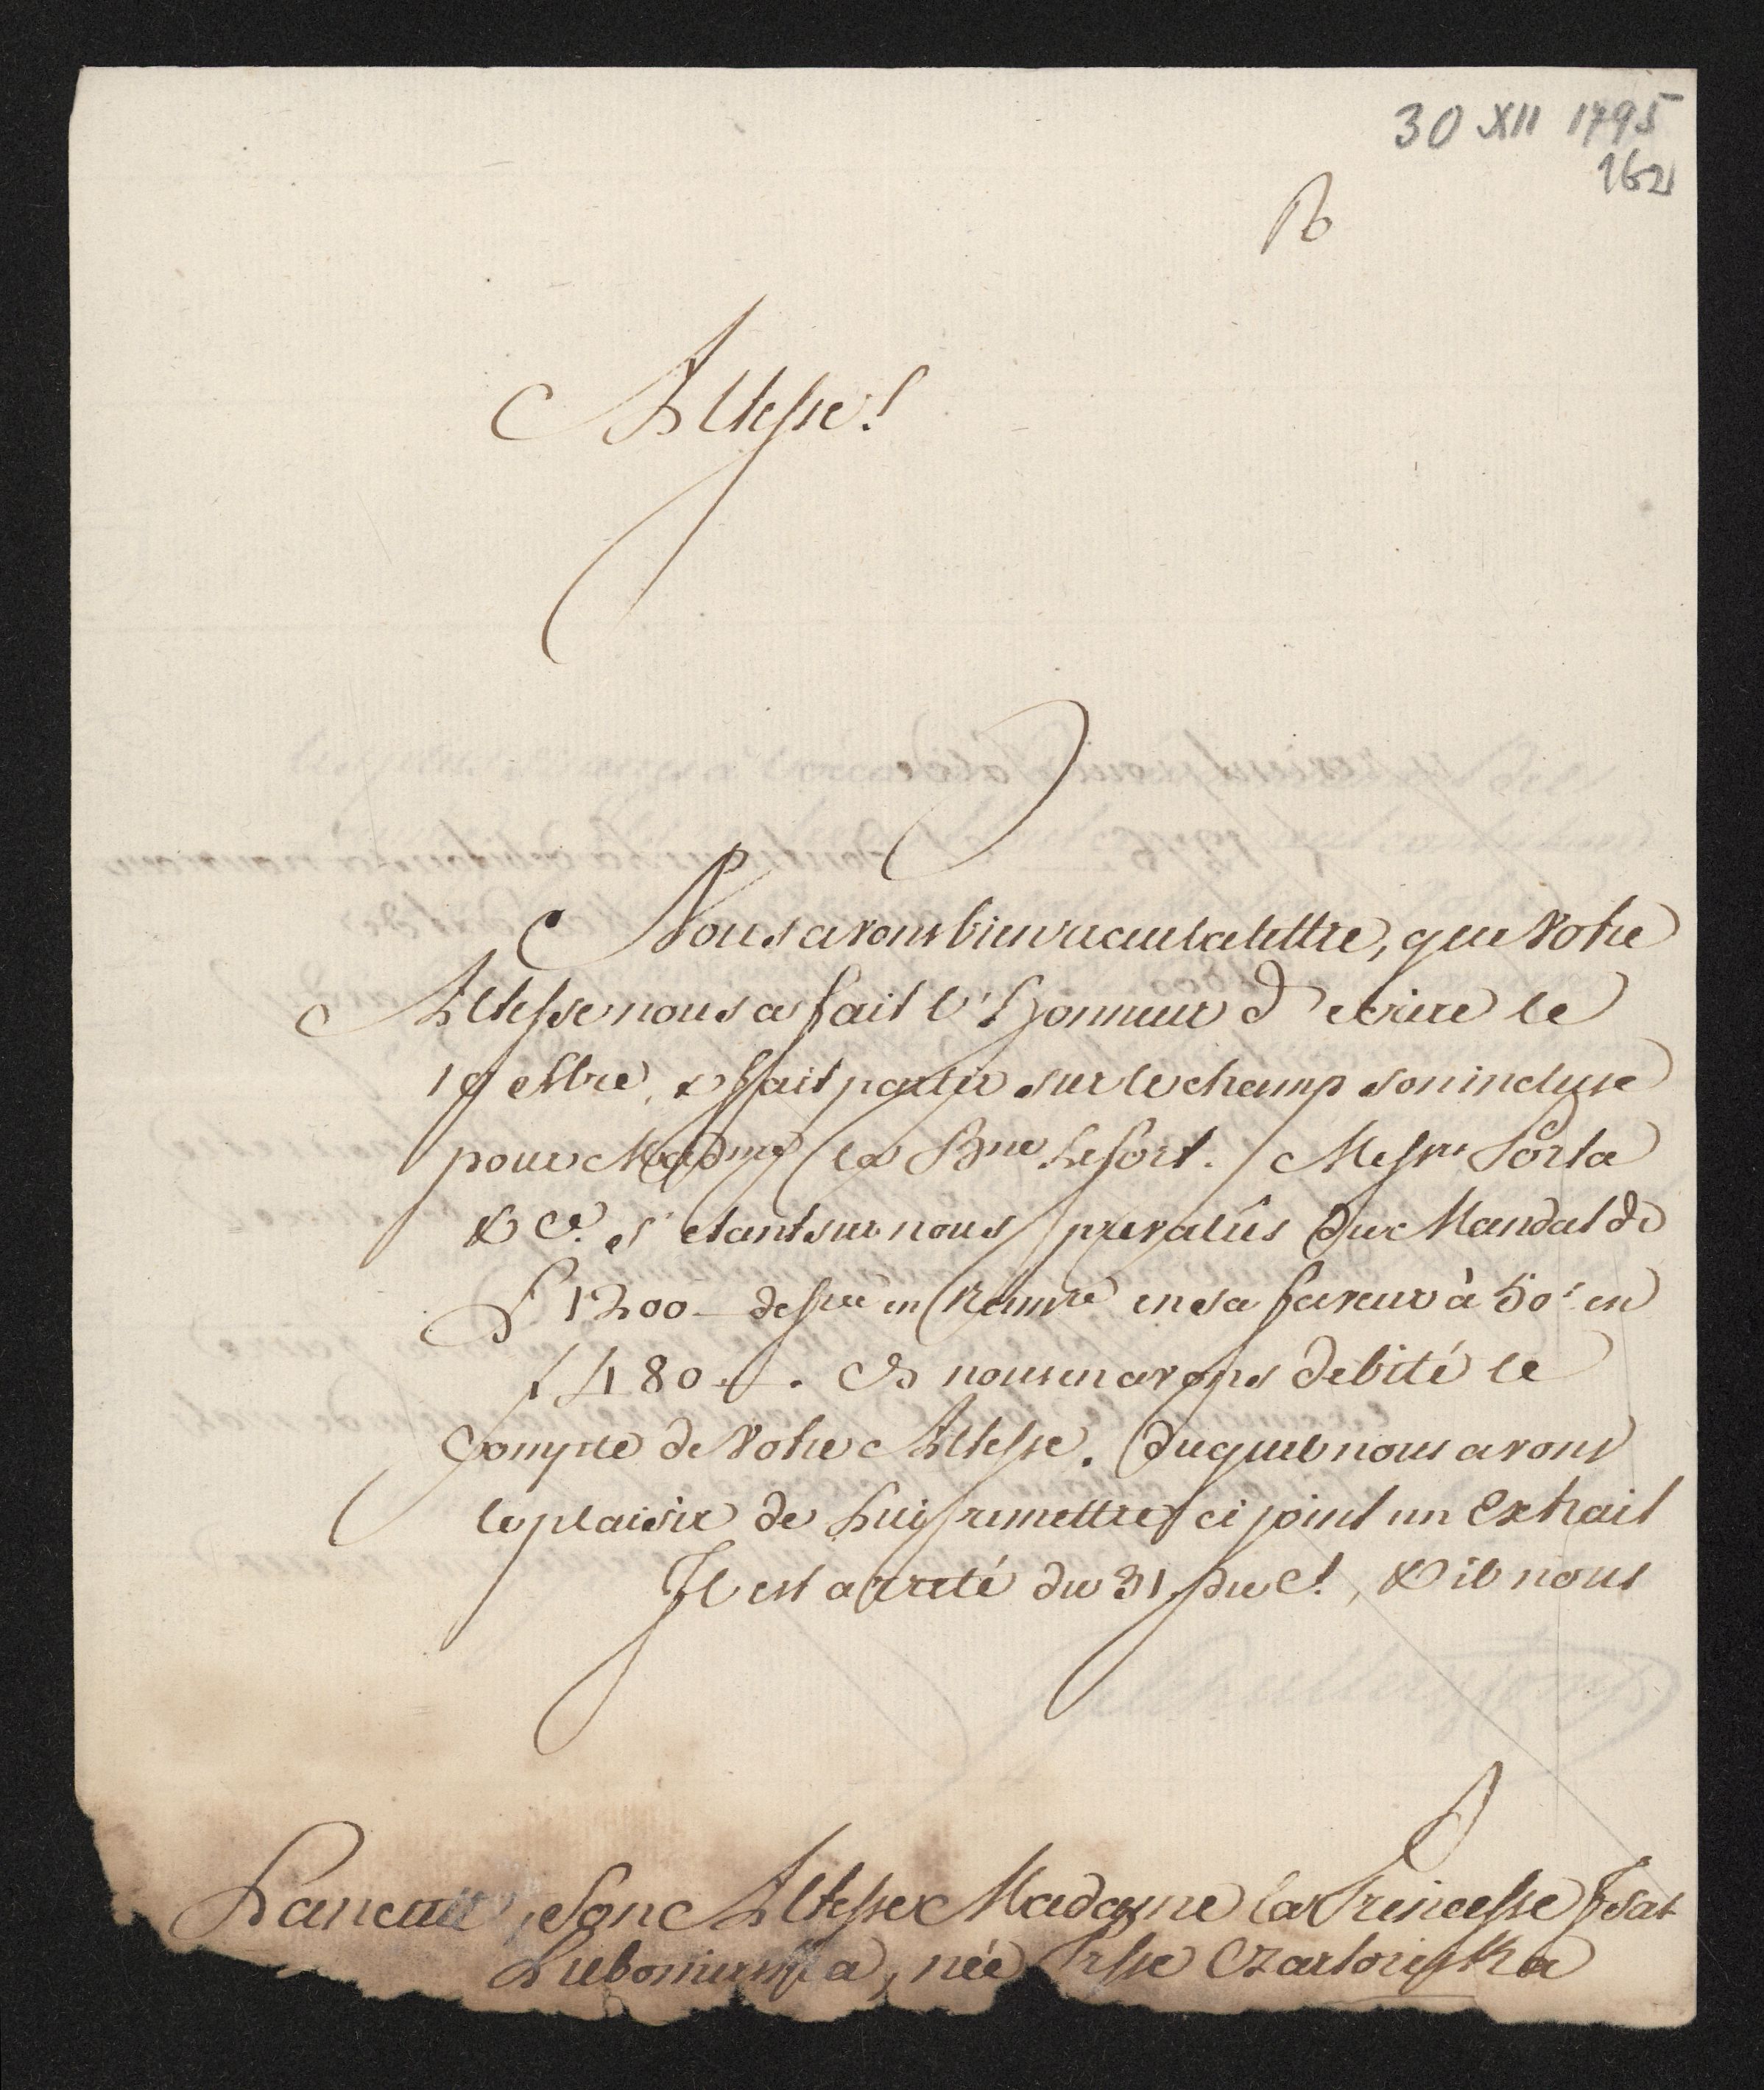 30 XII 1795
162
R
Altesse!
Nous avons bien recu la lettre, que Votre
Altesse nous a fait l'Honneur d'ecrire le
19 , & fait partir sur le champ son incluse
pour Madme la Bne Lefort. Messrs Porta
& Ce. s'etant sur nous prevalûs du Mandat de
1200 en sa faveur à 50s en
f 480 . nous en avons debité le
Compte de Votre Altesse. duquel nous avons
le plaisir de Lui remettre ci joint un Extrait
Il est arreté du 31. du Ct, & il nous
Lancutt, Son Altesse Madame la Princesse Isab
Lubomirska, née Psse Czartoriska